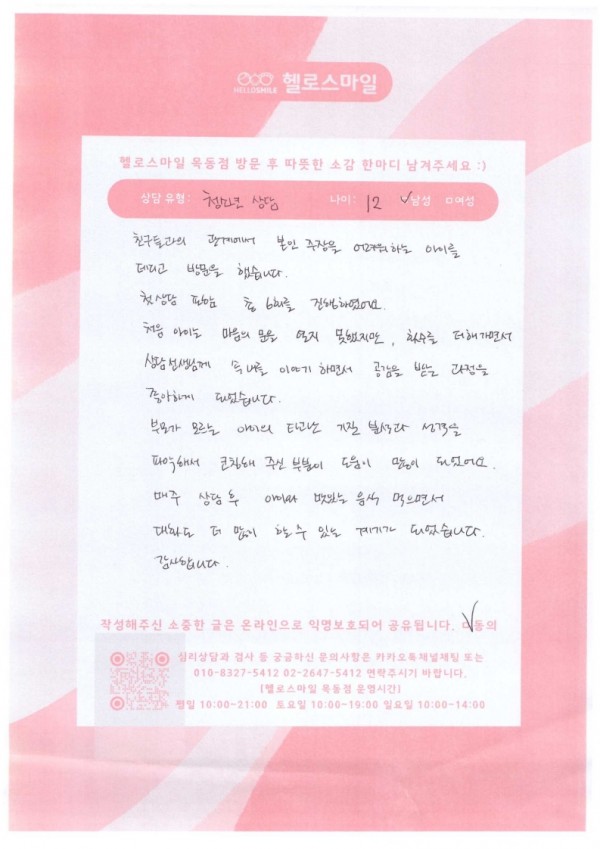 HELLOSMILE 헬로스마일
헬로스마일 목동점 방문 후 따뜻한 소감 한마디 남겨주세요 :)
상담 유형: 청소년 상담 나이: 12 ✓남성 □여성
친구들과의 관계에서 본인 주장을 어려워하는 아이를
데리고 방문을 했습니다.
첫 상담 포함 총 6회를 진행하였어요.
처음 아이는 마음의 문을 열지 못했지만, 회수를 더해가면서
상담선생님께 속내를 이야기 하면서 공감을 받는 과정을
좋아하게 되었습니다.
부모가 모르는 아이의 타고난 기질 분석과 성격을
파악해서 코칭해 주신 부분이 도움이 많이 되었어요.
매주 상담 후 아이와 맛있는 음식 먹으면서
대화도 더 많이 할 수 있는 계기가 되었습니다.
감사합니다.
작성해주신 소중한 글은 온라인으로 익명보호되어 공유됩니다. ☑동의
심리상담과 검사 등 궁금하신 문의사항은 카카오톡채널채팅 또는
010-8327-5412 02-2647-5412 연락주시기 바랍니다.
[헬로스마일 목동점 운영시간]
평일 10:00~21:00 토요일 10:00~19:00 일요일 10:00~14:00